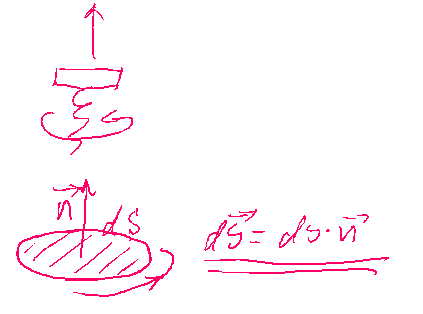 n⃗
dS
dS⃗ = ds · n⃗